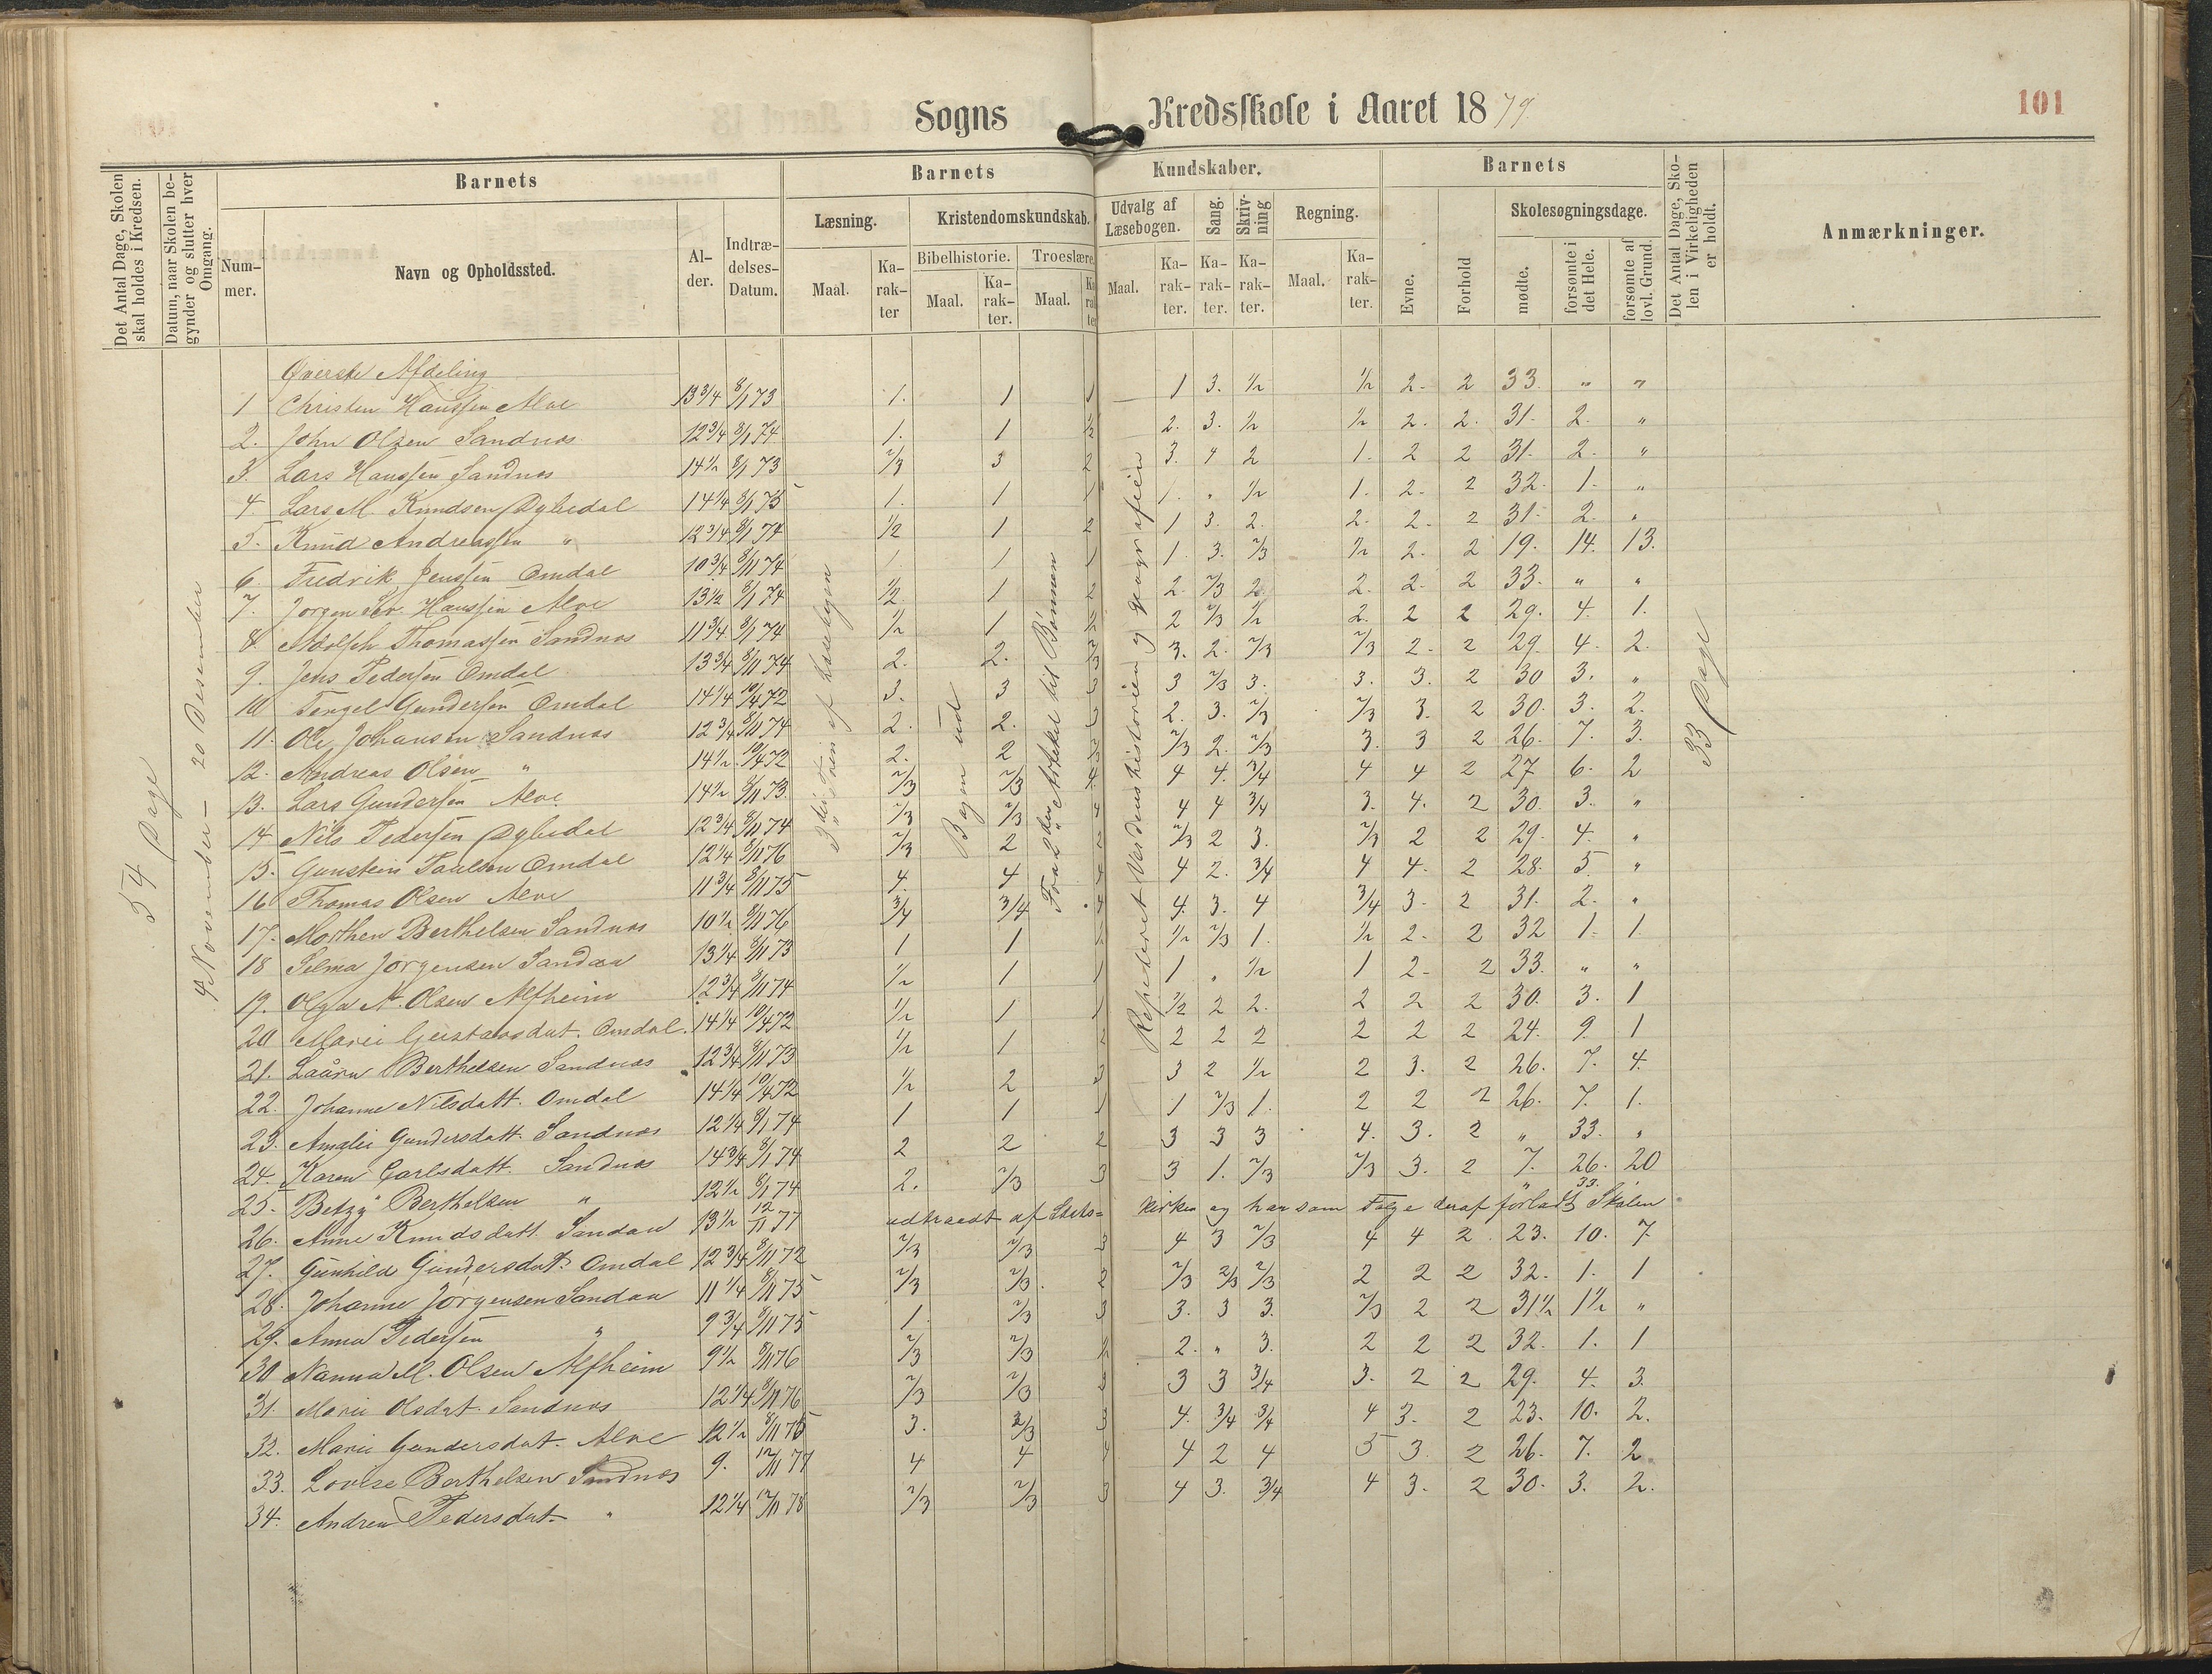 Sogns Kredsskole i Aaret 1879.
101
Det Antal Dage, Skolen skal holdes i Kredsen.
Datum, naar Skolen begynder og slutter hver Omgang.
Barnets
Nummer.
Navn og Opholdssted.
Alder.
Indtrædelses-Datum.
Barnets Kundskaber.
Læsning.
Maal.
Karakter
Kristendomskundskab.
Bibelhistorie.
Maal.
Karakter.
Troeslære.
Maal.
Karakter
Udvalg af Læsebogen.
Maal.
Karakter.
Sang.
Karakter.
Skrivning
Karakter.
Regning.
Maal.
Karakter.
Barnets
Evne.
Forhold
Skolesøgningsdage.
mødte.
forsømte i det Hele.
forsømte af lovl. Grund.
Det Antal Dage, Skolen i Virkeligheden er holdt.
Anmærkninger.
54 Dage
4 November – 20 Desember
3die Trin af Læsebogen
Bogen ud
Fra 2den Artikel til Bønnen
Repeteret Verdenshistorien og Geografien
33 Dage
Øverste Afdeling
1 Christen Hanssen Alve 13 3/4 8/1 73 1. 1 1 1 3. 1/2 1/2 2. 2 33. " "
2. John Olsen Sandnes 12 3/4 8/1 74 1. 1 1/2 2. 3. 1/2 1/2 2. 2. 31. 2. "
3. Lars Hanssen Sandnes 14 1/2 8/1 73 2/3 3 2 3. 4 2 1. 2 2 31. 2. "
4. Lars M. Knudsen Dybedal 14 1/4 8/1 75 1. 1 1 1. " 1/2 1. 2. 2 32. 1. "
5. Knud Andreassen " 12 3/4 8/1 74 1/2 1 2 1 3. 2. 2. 2. 2 31. 2. "
6. Fredrik Jenssen Omdal 10 3/4 8/11 74 1 1 1 1. 3. 2/3 1/2 2. 2 19. 14. 13.
7. Jørgen Sev. Hanssen Alve 13 1/2 8/1 74 1/2 1 2 2. 2/3 2. 2. 2. 2 33. " "
8. Adolph Thomassen Sandnes 11 3/4 8/1 74 1/2 1 1/2 2 2/3 1/2 2. 2 2 29. 4. 1.
9. Jens Pedersen Omdal 13 3/4 8/11 74 2. 2. 2/3 3. 2. 2/3 2/3 2. 2 29. 4. 2.
10 Tengel Gundersen Omdal 14 1/4 10/4 72 3. 3 3 3 2/3 3. 3. 3. 2 30 3. "
11. Ole Johansen Sandnes 12 3/4 8/11 74 2. 2. 3 2. 3. 2/3 2/3 3. 2 30. 3. 2.
12. Andreas Olsen " 14 1/2 10/4 72 2. 2 2/3 2/3 2. 2/3 3. 3 2 26. 7. 3.
13. Lars Gundersen Alve 14 1/2 8/11 73 2/3 2/3 4 4 4. 3/4 4 4 2 27 6. 2
14 Nils Pedersen Dybedal 12 3/4 8/11 74 2/3 2/3 4 4 4 3/4 3. 4. 2 30. 3. "
15. Gunstein Paulsen Omdal 12 1/4 8/11 76 2/3 2 2 2/3 2 3. 2/3 2 2 29. 4. "
16 Thomas Olsen Alve 11 3/4 8/11 75 4. 4 4 4 2. 3/4 4 4. 2 28. 5. "
17. Morthen Berthelsen Sandnes 10 1/2 8/11 76 3/4 3/4 4 4. 3. 4 3/4 3. 2 31. 2. "
18 Selma Jørgensen Sandaa 13 1/4 8/11 73 1 1 1/2 1/2 2/3 1. 1/2 2. 2 32 1. 1.
19. Olga N. Olsen Alfheim 12 3/4 8/11 74 1/2 1 1 1 " 1/2 1 2. 2 33. " "
20 Marie Gustavsdat. Omdal. 14 1/4 10/4 72 1/2 1 1 1/2 2 2. 2 2 2 30. 3. 1
21. Laura Berthelsen Sandnes 12 3/4 8/11 73 1/2 1 2 2 2 2 2 2 2 24. 9. 1
22. Johanne Nilsdatt. Omdal 14 1/4 10/4 72 1/2 2 3 3 2 1/2 2 3. 2 26. 7. 4.
23. Amalie Gundersdatt. Sandnes 12 1/4 8/1 74 1 1 1 1 2/3 1. 2 2 2 26. 7. 1.
24. Karen Carlsdatt. Sandnes 14 3/4 8/1 74 2 2 2 3 3 3 4. 3. 2 " 33. "
25. Betzy Berthelsen " 12 1/2 8/1 74 2. 2/3 3 3 1. 2/3 2/3 3. 2 7. 26. 20
26. Anne Knudsdatt. Sandaa 13 1/2 12/11 77 udtraadt af Stats- kirken og har som Følge deraf forladt Skolen " 33.
27. Gunhild Gundersdat. Omdal 12 3/4 8/11 72 2/3 2/3 3 4 3 2/3 4 4 2 23. 10. 7.
28. Johanne Jørgensen Sandaa 11 1/4 8/11 75 2/3 2/3. 2 2/3 2/3 2/3 2 2 2 32. 1. 1
29. Anna Pedersen " 9 3/4 8/11 75 1. 2/3 3 3. 3 3. 2/3 2 2 31 1/2 1 1/2 "
30 Nanna M. Olsen Alfheim 9 1/2 8/11 76 2/3 2/3 1/2 2. " 3. 2 2 2 32. 1. 1
31. Marie Olsdat. Sandnes 12 1/4 8/11 76 2/3 2/3 3 3 3 3/4 3. 2 2 29. 4. 3.
32. Marie Gundersdat. Alve 12 1/2 8/11 75 3. 2/3 3 4. 3/4 3/4 4 3. 2 23. 10. 2.
33. Lovise Berthelsen Sandnes 9. 12/11 77 4 4 4 4 2 4 5 3. 2 26. 7. 2
34. Andrea Pedersdat. " 12 1/4 12/11 78 2/3 2/3 3 4 3. 3/4 4 3. 2 30. 3. 2.